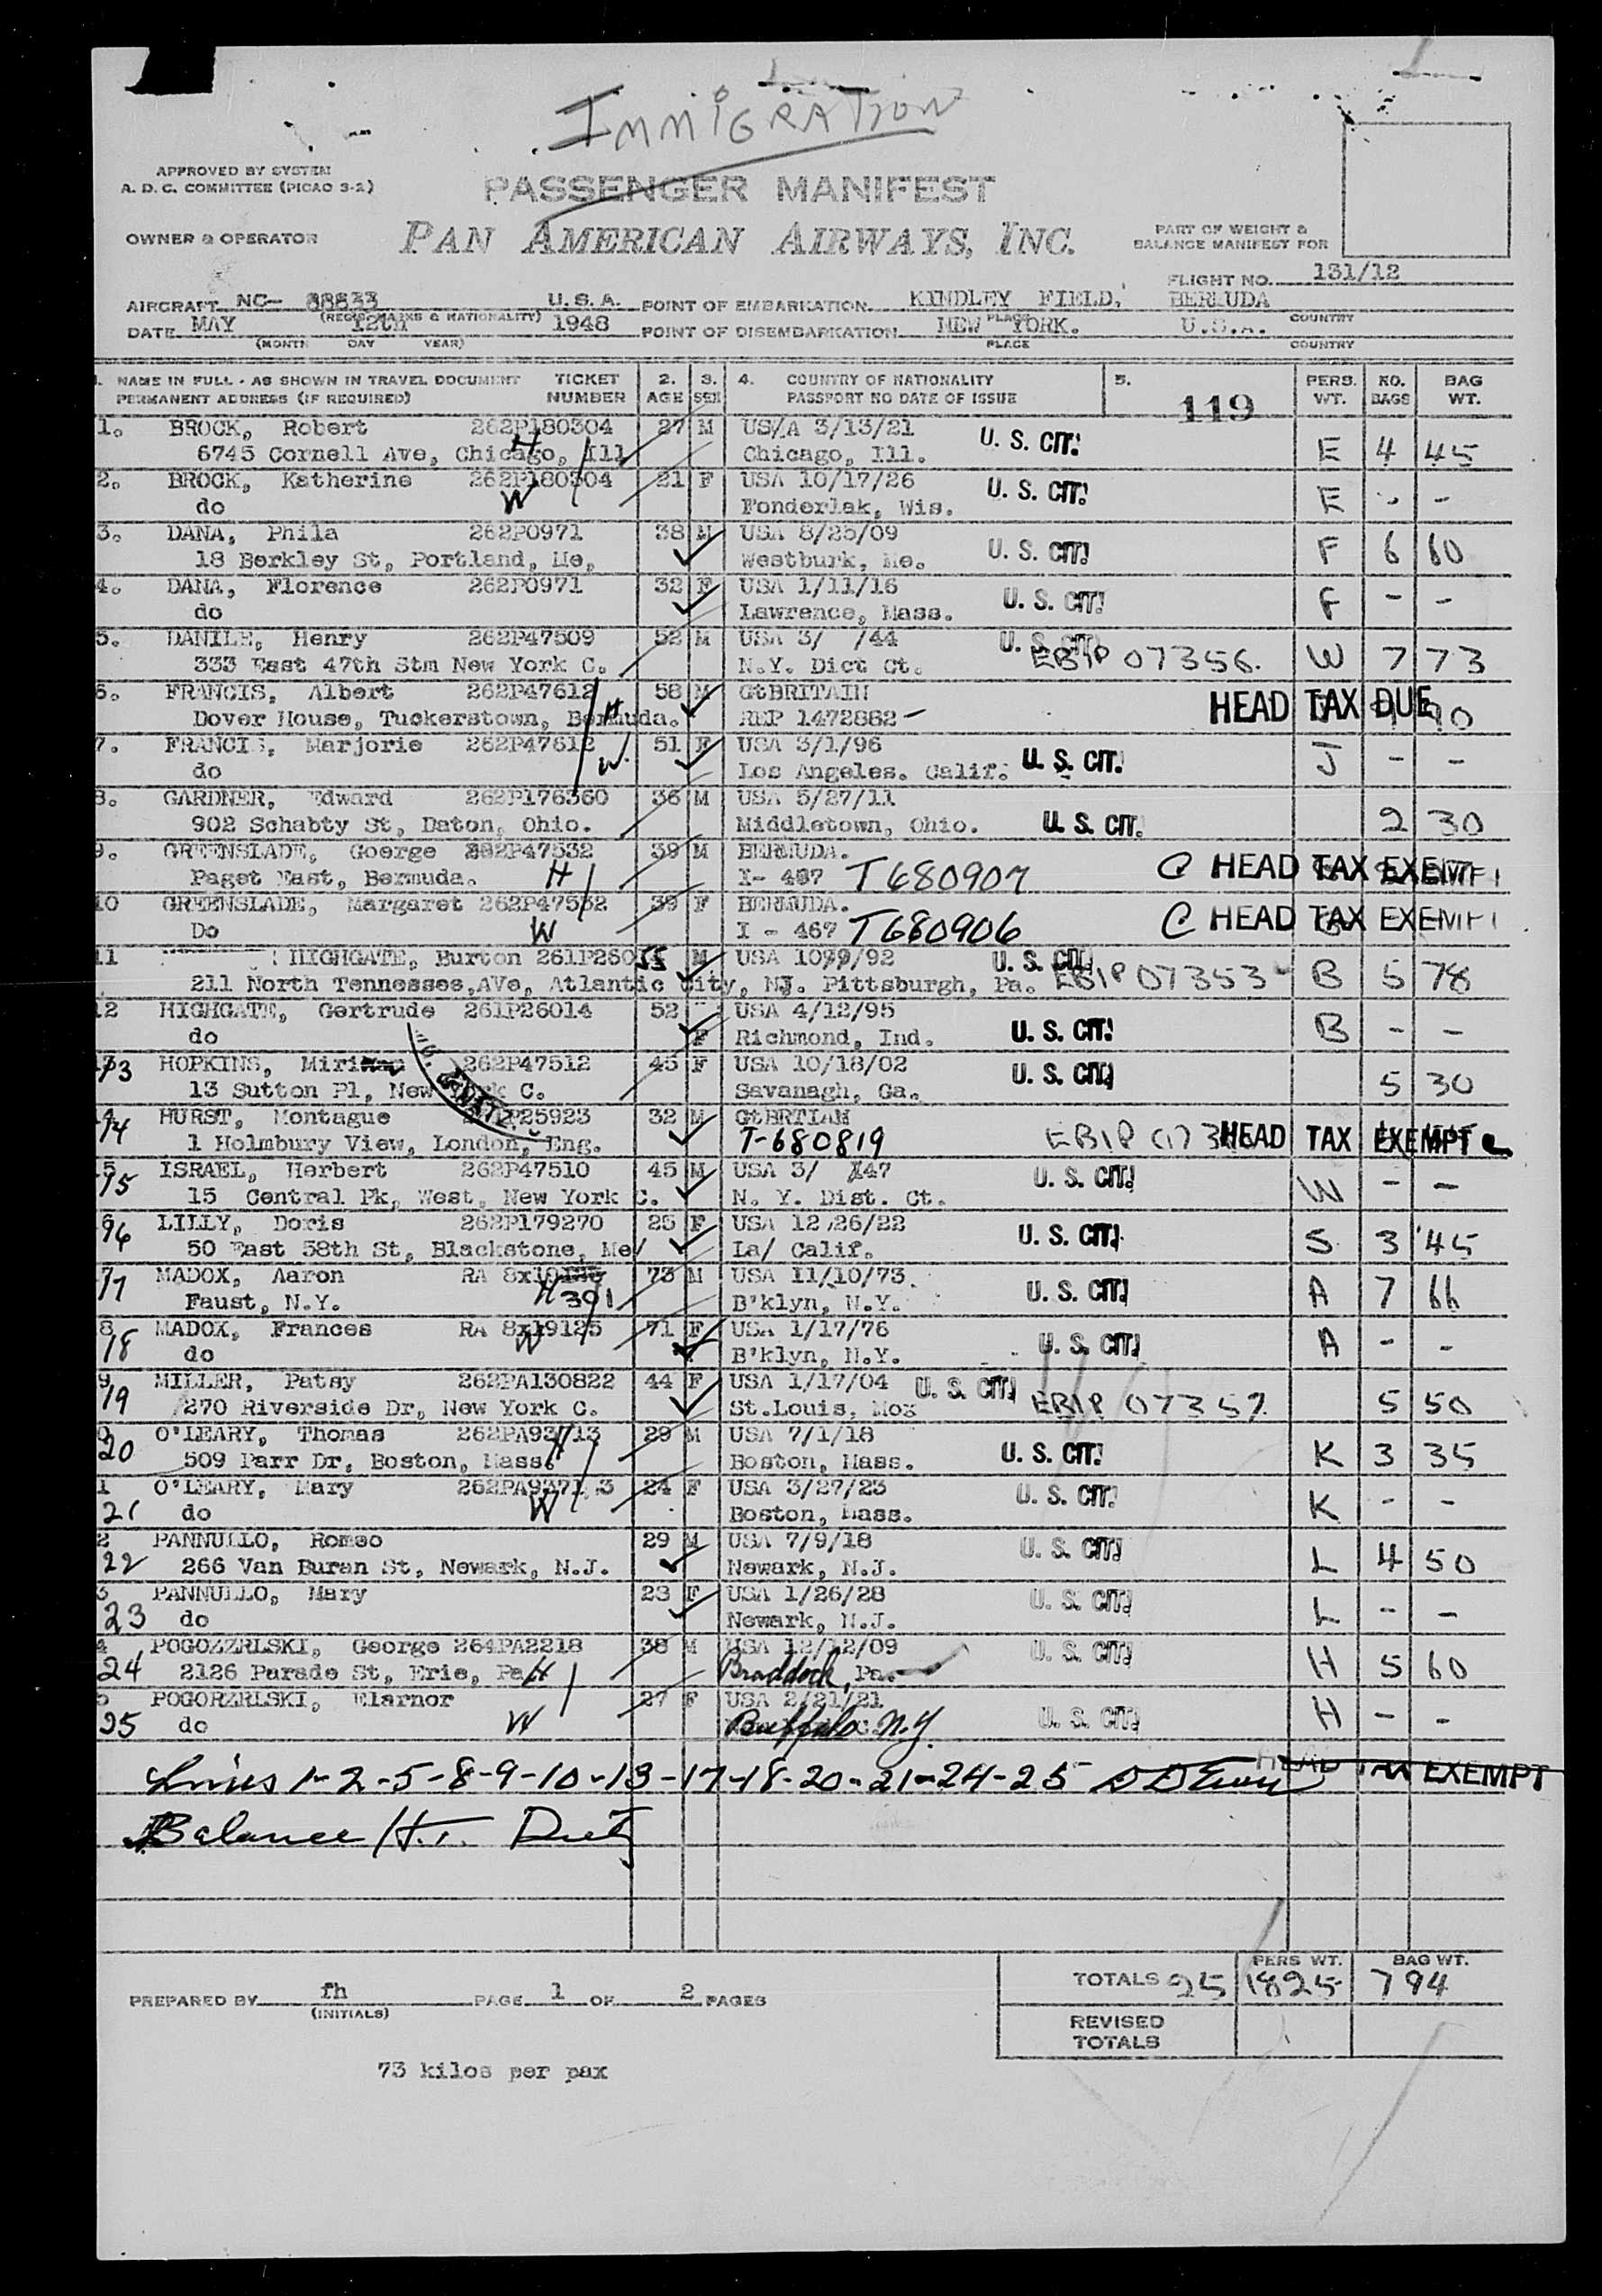 IMMIGRATION
APPROVED BY SYSTEM
A. D. C. COMMITTEE (PICAO S-2)
PASSENGER MANIFEST
OWNER & OPERATOR PAN AMERICAN AIRWAYS, INC.
PART OF WEIGHT &
BALANCE MANIFEST FOR
FLIGHT NO. 131/12
AIRCRAFT NC- 88833 U.S.A. POINT OF EMBARKATION KINDLEY FIELD, BERMUDA
(REGIS. MARKS & NATIONALITY) PLACE COUNTRY
DATE MAY 12th 1948 POINT OF DISEMBARKATION NEW YORK. U.S.A.
(MONTH DAY YEAR) PLACE COUNTRY
1. NAME IN FULL - AS SHOWN IN TRAVEL DOCUMENT TICKET 2. 3. 4. COUNTRY OF NATIONALITY 5. PERS. NO. BAG
PERMANENT ADDRESS (IF REQUIRED) NUMBER AGE SEX PASSPORT NO DATE OF ISSUE 119 WT. BAGS WT.
1. BROCK, Robert 262P180304 27 M US/A 3/13/21 U. S. CIT.
6745 Cornell Ave, Chicago, Ill H Chicago, Ill. E 4 45
2. BROCK, Katherine 262P180304 21 F USA 10/17/26 U. S. CIT.
do W Fonderlak, Wis. E - -
3. DANA, Phila 262P0971 38 M USA 8/25/09
18 Berkley St, Portland, Me, Westburk, Me. U. S. CIT. F 6 60
4. DANA, Florence 262P0971 32 F USA 1/11/16
do Lawrence, Mass. U. S. CIT. F - -
5. DANILE, Henry 262P47509 52 M USA 3/ /44 U. S. CIT.
333 East 47th Stm New York C. N.Y. Dict Ct. EBIP 07356. W 7 73
6. FRANCIS, Albert 262P47612 58 M GtBRITAIN
Dover House, Tuckerstown, Bermuda. H REP 1472882 - HEAD TAX DUE
7. FRANCIS, Marjorie 262P47612 51 F USA 3/1/96
do W. Los Angeles. Calif. U. S. CIT. J - -
8. GARDNER, Edward 262P176360 36 M USA 5/27/11
902 Schabty St, Daton, Ohio. Middletown, Ohio. U. S. CIT. 2 30
9. GREENSLADE, Goerge 262P47532 39 M BERMUDA.
Paget East, Bermuda. H I- 487 T680907 C HEAD TAX EXEMPT
10 GREENSLADE, Margaret 262P47532 39 F BERMUDA.
Do W I - 467 T680906 C HEAD TAX EXEMPT
11 HIGHGATE, Burton 261P260 55 M USA 10 /92 U. S. CIT.
211 North Tennesses,AVe, Atlantic City, NJ. Pittsburgh, Pa. EBIP 07353 B 5 78
12 HIGHGATE, Gertrude 261P26014 52 USA 4/12/95
do F Richmond, Ind. U. S. CIT. B - -
13 HOPKINS, Miri 262P47512 45 F USA 10/18/02
13 Sutton Pl, New York C. Savanagh, Ga. U. S. CIT. 5 30
14 HURST, Montague P25923 32 M GtBRTIAN
1 Holmbury View, London, Eng. T-680819 HEAD TAX EXEMPT
15 ISRAEL, Herbert 262P47510 45 M USA 3/ /47 U. S. CIT.
15 Central Pk, West, New York C. N. Y. Dist. Ct. W - -
16 LILLY, Doris 262P179270 25 F USA 12/26/22
50 East 58th St, Blackstone, Me/ La/ Calif. U. S. CIT. S 3 45
17 MADOX, Aaron RA 8x19 73 M USA 11/10/73.
Faust, N.Y. H 391 B'klyn, N.Y. U. S. CIT. A 7 66
18 MADOX, Frances RA 8x19125 71 F USA 1/17/76
do W B'klyn, N.Y. U. S. CIT. A - -
19 MILLER, Patsy 262PA130822 44 F USA 1/17/04 U. S. CIT.
270 Riverside Dr, New York C. St.Louis, Mox EBIP 07357. 5 50
20 O'LEARY, Thomas 262PA93713 29 M USA 7/1/18
509 Parr Dr, Boston, Mass. H Boston, Mass. U. S. CIT. K 3 35
21 O'LEARY, Mary 262PA93713 24 F USA 3/27/23
do W Boston, Mass. U. S. CIT. K - -
22 PANNULLO, Romeo 29 M USA 7/9/18
266 Van Buran St, Newark, N.J. Newark, N.J. U. S. CIT. L 4 50
23 PANNULLO, Mary 23 F USA 1/26/28
do Newark, N.J. U. S. CIT. L - -
24 POGOZZRLSKI, George 264PA2218 38 M USA 12/12/09
2126 Parade St, Erie, Pa H Braddock, Pa. U. S. CIT. H 5 60
25 POGORZRLSKI, Elarnor 27 F USA 2/21/21
do W Buffalo N.Y. U. S. CIT. H - -
Lines 1-2-5-8-9-10-13-17-18-20-21-24-25 HEAD TAX EXEMPT
Balance H.T.
PERS WT. BAG WT.
TOTALS 25 1825 794
PREPARED BY fh PAGE 1 OF 2 PAGES
(INITIALS)
REVISED
TOTALS
73 kilos per pax